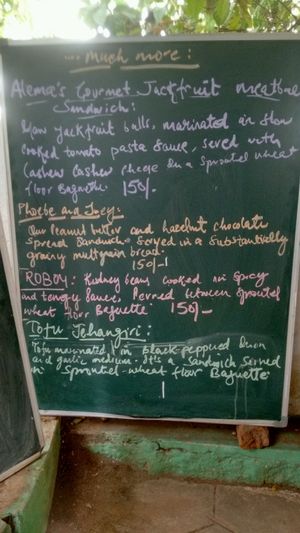 ... much more:
Alema's Gourmet Jackfruit meatball
Sandwich:
Raw Jackfruit balls, marinated in slow
cooked tomato pasta sauce, served with
Cashew Cashew chese in a Sprouted wheat
floor Baguette. 150/-
Phoebe and Joey:
Raw Peanut butter and hazelnut chocolate
Spread Sandwich Served in a Substantially
grainy multgrain bread.
150/-
ROBOY: Kidney beans cooked in Spicy
and tangy Sauce, between Sprouted
wheat floor Baguette 150/-
Tofu Jehangiri:
Tofu marinated in black peppered
and garlic medium. It's a Sandwich Served
in Sprouted-wheat flour Baguette.